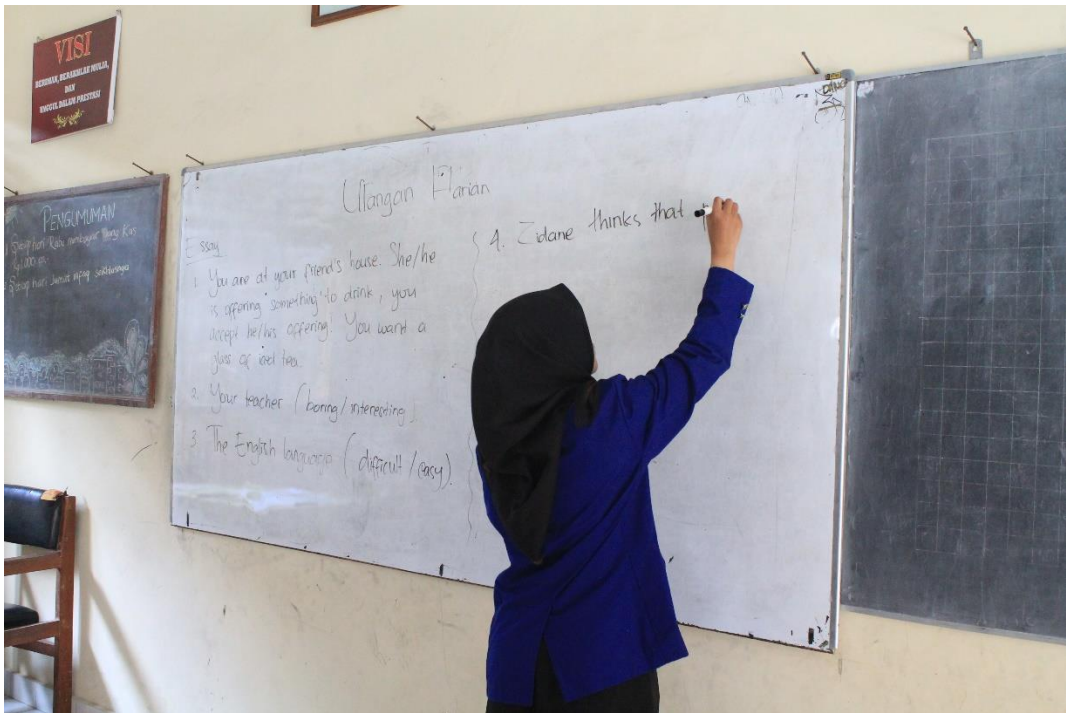 VISI
BERIMAN, BERAKHLAK MULIA,
DAN
UNGGUL DALAM PRESTASI
PENGUMUMAN
Setiap hari Rabu membayar Uang Kas
Setiap hari Jum'at
Ulangan Harian
Essay
1. You are at your friend's house. She/he
is offering something to drink, you
accept he/his offering. You want a
glass of iced tea.
2. Your teacher (boring/interesting)
3. The English language (difficult/easy).
4. Zidane thinks that